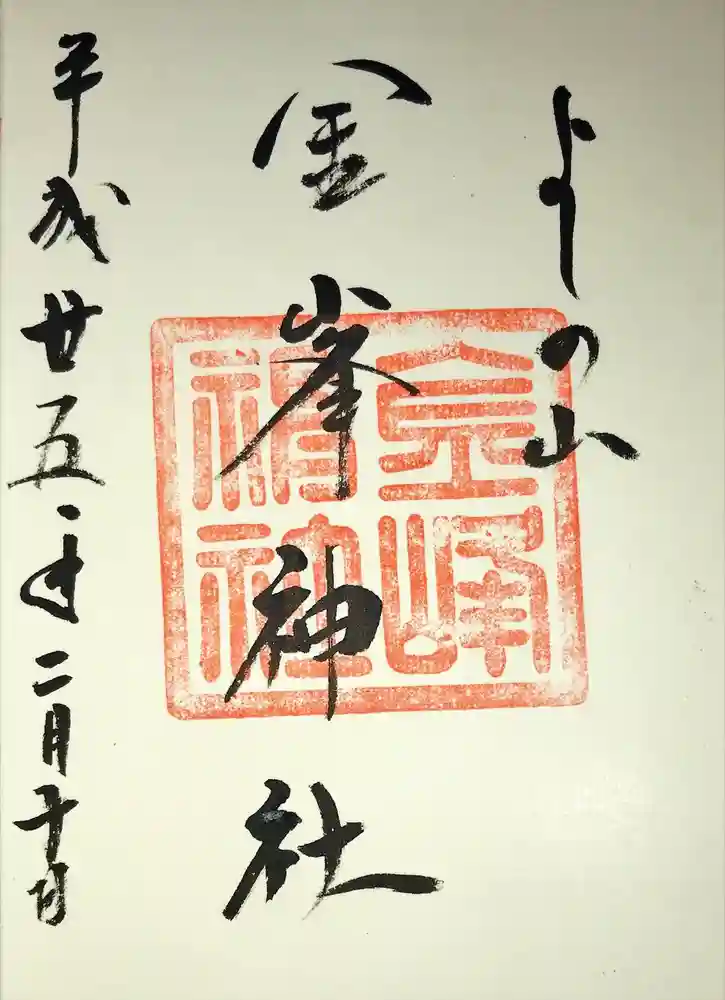 よしの山
金峯神社
金峰神社
平成廿五年二月十日